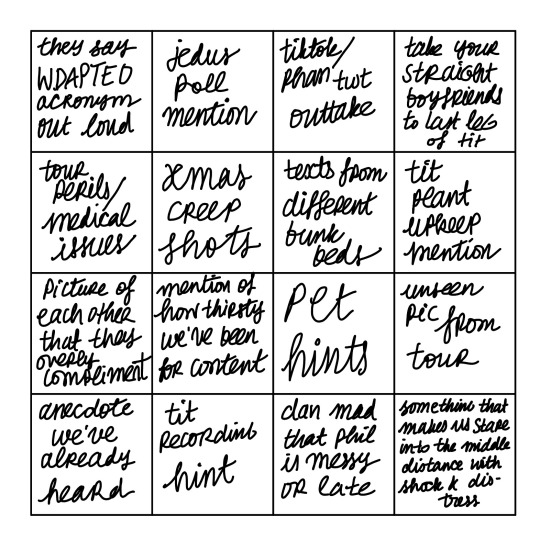 they say
WDAPTEO
acronym
out loud
jedus
poll
mention
tiktok/
phan twt
outtake
take your
straight
boyfriends
to last leg
of tit
tour
perils/
medical
issues
xmas
creep
shots
texts from
different
bunk
beds
tit
plant
upkeep
mention
picture of
each other
that they
overly
compliment
mention of
how thirsty
we've been
for content
pet
hints
unseen
pic from
tour
anecdote
we've
already
heard
tit
recording
hint
dan mad
that phil
is messy
or late
something that
makes us stare
into the middle
distance with
shock & dis-
tress